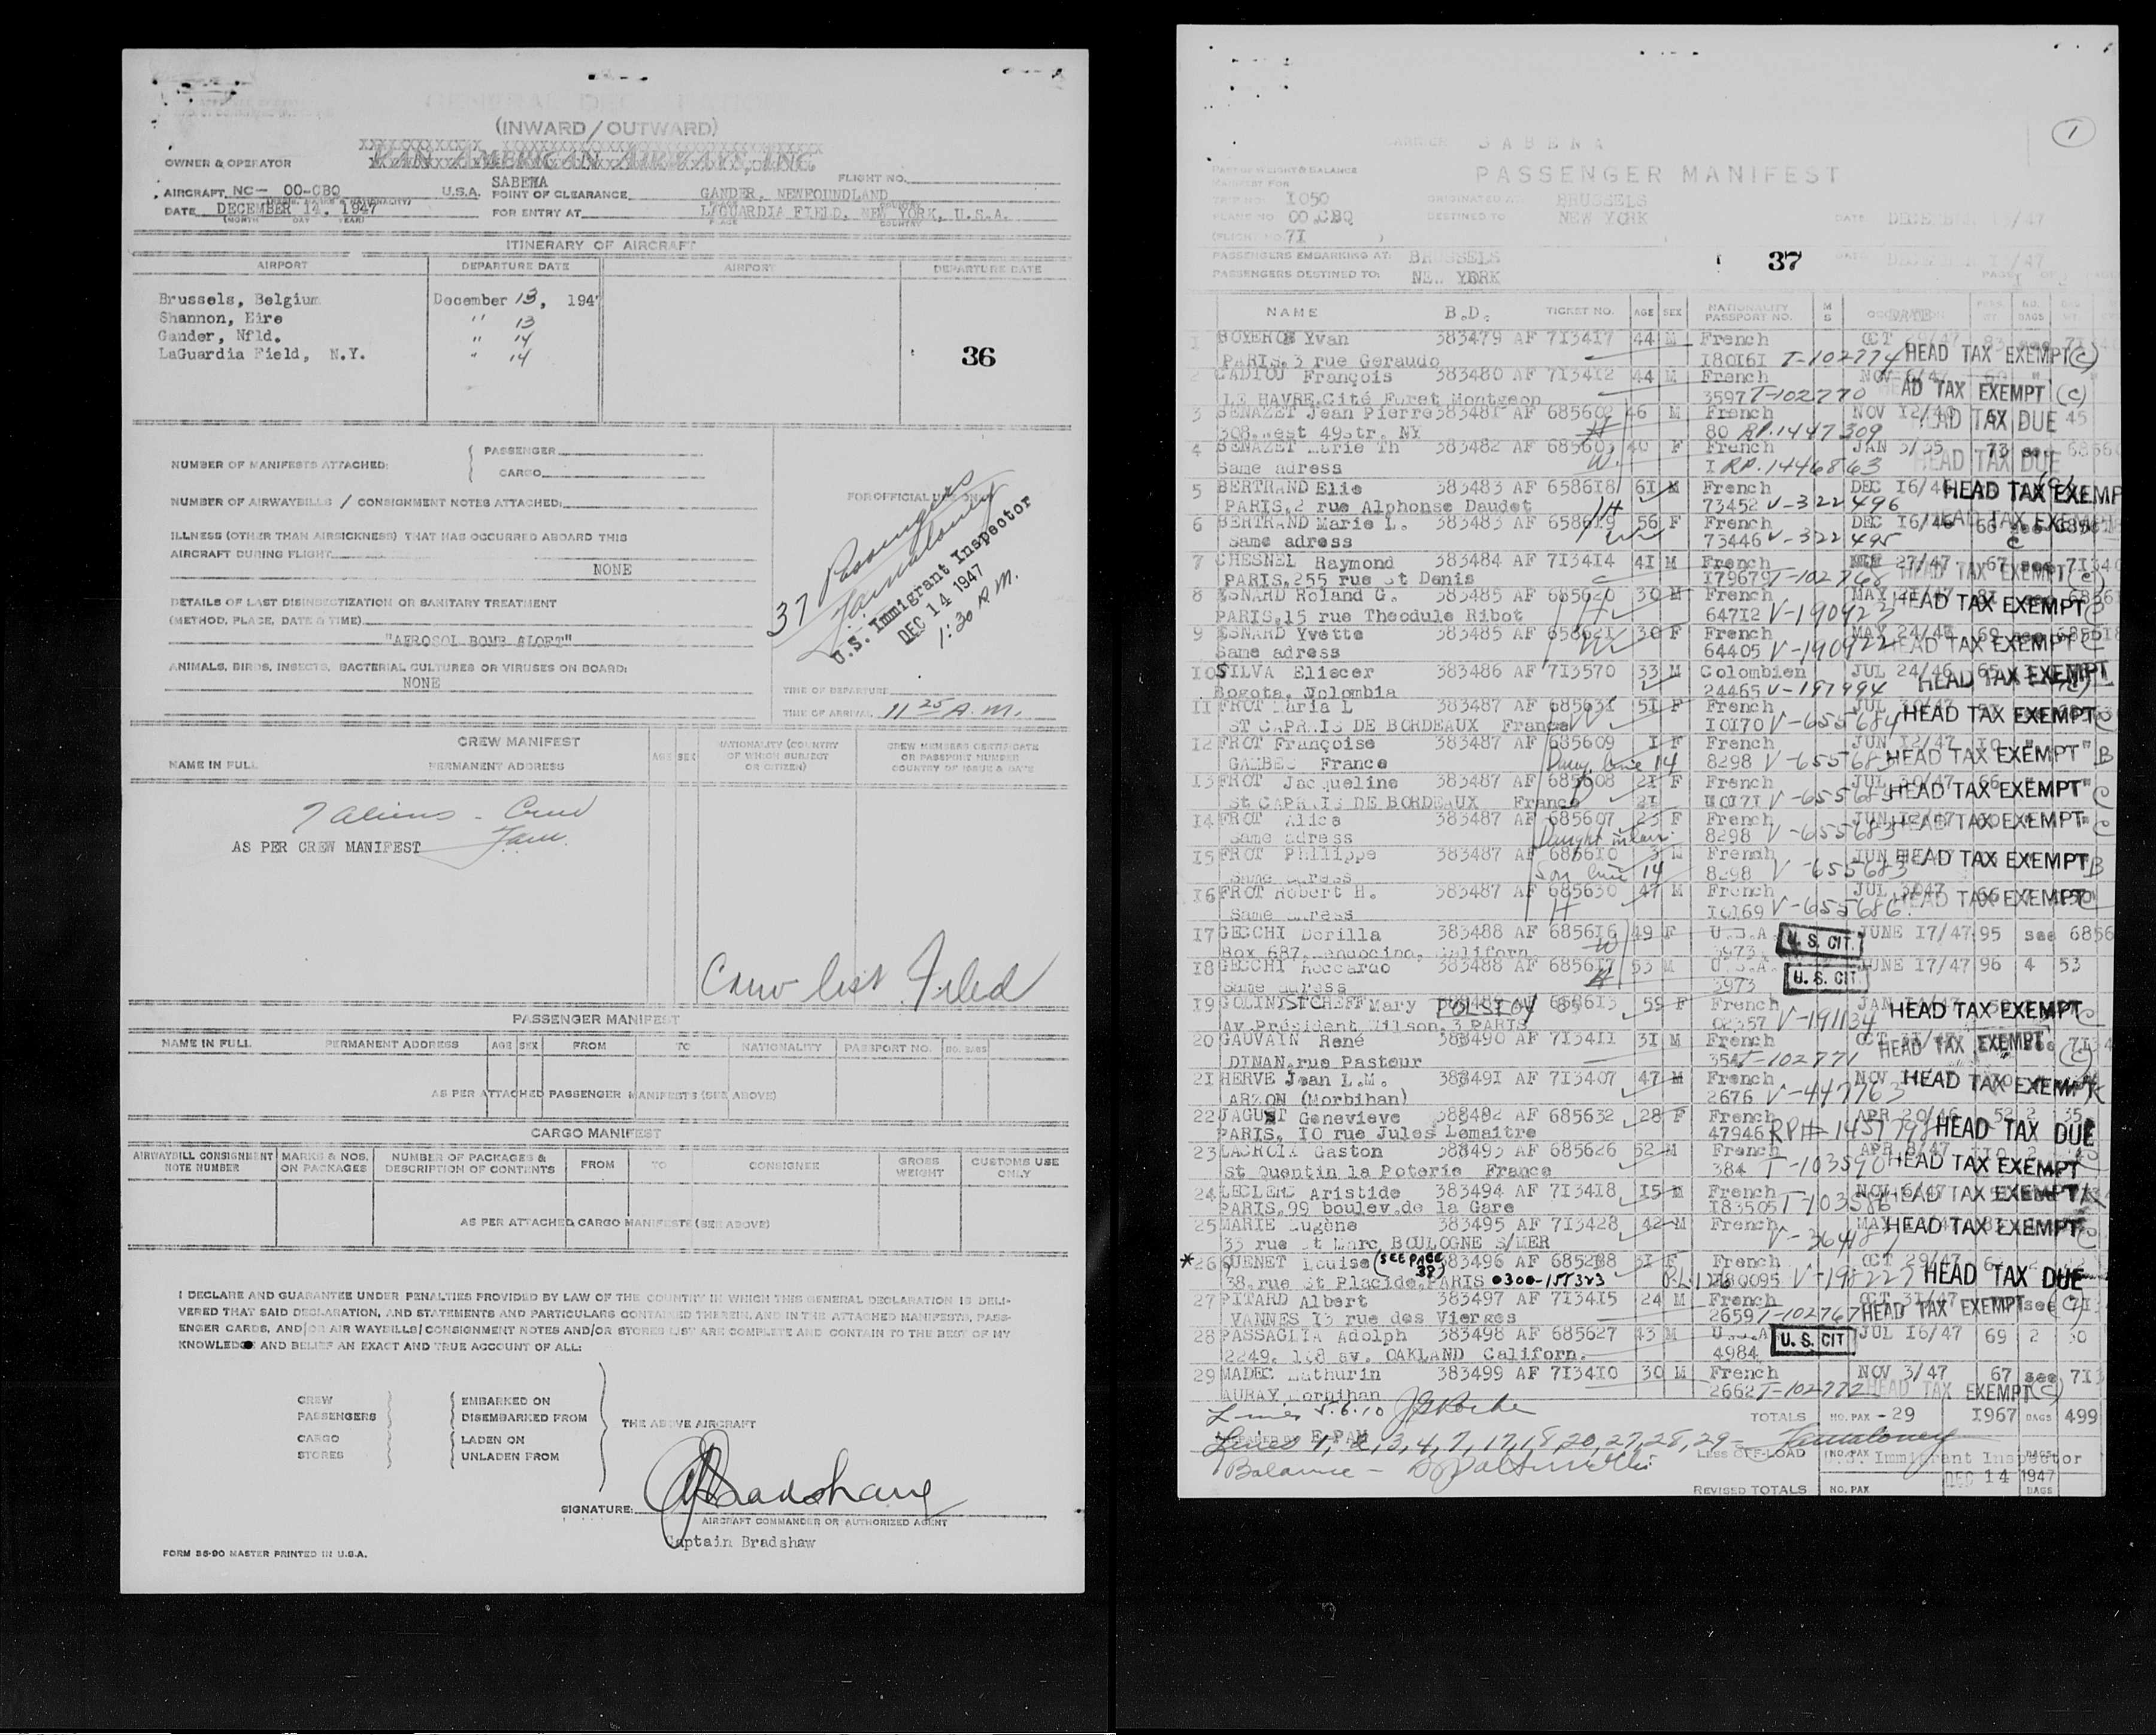 GENERAL DECLARATION
(INWARD/OUTWARD)
OWNER & OPERATOR PAN AMERICAN AIRWAYS, INC.
SABENA
FLIGHT NO.
AIRCRAFT NC- OO-CBQ U.S.A. POINT OF CLEARANCE GANDER, NEWFOUNDLAND
DATE DECEMBER 14, 1947 FOR ENTRY AT LAGUARDIA FIELD, NEW YORK, U.S.A.
(MONTH DAY YEAR) PLACE COUNTRY
ITINERARY OF AIRCRAFT
AIRPORT DEPARTURE DATE AIRPORT DEPARTURE DATE
Brussels, Belgium December 13, 194
Shannon, Eire " 13
Gander, Nfld. " 14
LaGuardia Field, N.Y. " 14
36
NUMBER OF MANIFESTS ATTACHED: PASSENGER
CARGO
NUMBER OF AIRWAYBILLS / CONSIGNMENT NOTES ATTACHED:
ILLNESS (OTHER THAN AIRSICKNESS) THAT HAS OCCURRED ABOARD THIS
AIRCRAFT DURING FLIGHT
NONE
DETAILS OF LAST DISINSECTIZATION OR SANITARY TREATMENT
(METHOD, PLACE, DATE & TIME)
"AEROSOL BOMB ALOFT"
ANIMALS, BIRDS, INSECTS, BACTERIAL CULTURES OR VIRUSES ON BOARD:
NONE
FOR OFFICIAL USE ONLY
37 Passengers
U.S. Immigrant Inspector
DEC 14 1947
1:30 P.M.
TIME OF DEPARTURE
TIME OF ARRIVAL 11 25 A.M.
CREW MANIFEST
NAME IN FULL PERMANENT ADDRESS AGE SEX NATIONALITY (COUNTRY OF WHICH SUBJECT OR CITIZEN) CREW MEMBERS CERTIFICATE OR PASSPORT NUMBER COUNTRY OF ISSUE & DATE
7 aliens - Crew
AS PER CREW MANIFEST
Crew list Filed
PASSENGER MANIFEST
NAME IN FULL PERMANENT ADDRESS AGE SEX FROM TO NATIONALITY PASSPORT NO. NO. BAGS
AS PER ATTACHED PASSENGER MANIFESTS (SEE ABOVE)
CARGO MANIFEST
AIRWAYBILL CONSIGNMENT NOTE NUMBER MARKS & NOS. ON PACKAGES NUMBER OF PACKAGES & DESCRIPTION OF CONTENTS FROM TO CONSIGNEE GROSS WEIGHT CUSTOMS USE ONLY
AS PER ATTACHED CARGO MANIFESTS (SEE ABOVE)
I DECLARE AND GUARANTEE UNDER PENALTIES PROVIDED BY LAW OF THE COUNTRY IN WHICH THIS GENERAL DECLARATION IS DELI-
VERED THAT SAID DECLARATION, AND STATEMENTS AND PARTICULARS CONTAINED THEREIN, AND IN THE ATTACHED MANIFESTS, PASS-
ENGER CARDS, AND/OR AIR WAYBILLS/CONSIGNMENT NOTES AND/OR STORES LIST ARE COMPLETE AND CONTAIN TO THE BEST OF MY
KNOWLEDGE AND BELIEF AN EXACT AND TRUE ACCOUNT OF ALL:
CREW EMBARKED ON
PASSENGERS DISEMBARKED FROM THE ABOVE AIRCRAFT
CARGO LADEN ON
STORES UNLADEN FROM
SIGNATURE: Bradshaw
AIRCRAFT COMMANDER OR AUTHORIZED AGENT
Captain Bradshaw
FORM 86-90 MASTER PRINTED IN U.S.A.
1
SABENA
PASSENGER MANIFEST
TRIP NO. 1050 ORIGINATED AT BRUSSELS
PLANE NO. OO.CBQ DESTINED TO NEW YORK DATE DECEMBER 13/47
(FLIGHT NO. 71 )
PASSENGERS EMBARKING AT: BRUSSELS 37
PASSENGERS DESTINED TO: NEW YORK
NAME B.D. TICKET NO. AGE SEX NATIONALITY PASSPORT NO. M S DATE NO. BAGS
1 BOYEROB Yvan 383479 AF 713417 44 M French OCT
PARIS, 3 rue Geraudo 180161 T-102774 HEAD TAX EXEMPT (C)
2 CADIOU François 383480 AF 713412 44 M French NOV 6/47
LE HAVRE, Cité Furet Montgeon 3597 T-102770 HEAD TAX EXEMPT (C)
3 SENAZET Jean Pierre 383481 AF 685602 46 M French NOV 12/46 45
308. West 49str. NY H 80 RP.1447309 HEAD TAX DUE
4 SENAZET Marie Th 383482 AF 685603 40 F French JAN 3/35 73 see
Same adress W. 1 RP.1446863 HEAD TAX DUE
5 BERTRAND Elie 383483 AF 658618 61 M French DEC 16/46
PARIS, 2 rue Alphonse Daudet H 73452 V-322496 HEAD TAX EXEMP
6 BERTRAND Marie L. 383483 AF 658619 56 F French DEC 16/46 66
Same adress W 73446 V-322495 HEAD TAX EXEMPT C
7 CHESNEL Raymond 383484 AF 713414 41 M French 27/47 67 see
PARIS, 255 rue St Denis 179679 T-102768 HEAD TAX EXEMPT (C)
8 ESNARD Roland G. 383485 AF 685620 30 M French MAY
PARIS, 15 rue Theodule Ribot H 64712 V-190423 HEAD TAX EXEMPT C
9 ESNARD Yvette 383485 AF 658621 30 F French MAY 24/46
Same adress W 64405 V-190422 HEAD TAX EXEMPT C
10 SILVA Eliecer 383486 AF 713570 33 M Colombien JUL 24/46 65
Bogota, Colombia 24465 V-187994 HEAD TAX EXEMPT (C)
11 FROT Maria L 383487 AF 685631 51 F French JUL
ST CAPRAIS DE BORDEAUX France W 10170 V-655684 HEAD TAX EXEMPT C
12 FROT Françoise 383487 AF 685609 1 F French JUN 12/47 10
GAMBES France 14 8298 V-655683 HEAD TAX EXEMPT B
13 FROT Jacqueline 383487 AF 685608 21 F French JUL 30/47 66
St CAPRAIS DE BORDEAUX France 21 10171 V-655685 HEAD TAX EXEMPT C
14 FROT Alice 383487 AF 685607 23 F French JUN
Same adress Daught in law 8298 V-655683 HEAD TAX EXEMPT C
15 FROT Phillippe 383487 AF 685610 3 M French JUN
Same adress 14 8298 V-655683 HEAD TAX EXEMPT B
16 FROT Robert H. 383487 AF 685630 47 M French JUL 3047 66
Same adress H 10169 V-655686 HEAD TAX EXEMPT C
17 GECCHI Dorilla 383488 AF 685616 49 F U.S.A. JUNE 17/47 95 see 6856
Box 687, Mendocino, Californ W 3973 U.S. CIT.
18 GECCHI Roccardo 383488 AF 685617 53 M U.S.A. JUNE 17/47 96 4 53
Same adress H 3973 U.S. CIT.
19 GOLINISTCHEFF Mary TOLSTOY 658613 59 F French JAN
Av Président Wilson, 3 PARIS 02357 V-191134 HEAD TAX EXEMPT C
20 GAUVAIN René 383490 AF 713411 31 M French OCT 31/47
DINAN, rue Pasteur 354 T-102771 HEAD TAX EXEMPT (C)
21 HERVE Jean L.M. 383491 AF 713407 47 M French NOV
ARZON (Morbihan) 2676 V-447763 HEAD TAX EXEMPT
22 JAGUST Genevieve 383492 AF 685632 28 F French APR 20/46 52 2 35
PARIS, 10 rue Jules Lemaitre 47946 HEAD TAX DUE
23 LACROIX Gaston 383493 AF 685626 52 M French APR 8/47
St Quentin la Poterie France 384 T-103590 HEAD TAX EXEMPT
24 LECLERC Aristide 383494 AF 713418 15 M French NOV 6/47
PARIS, 99 boulev.de la Gare 183505 T-103586 HEAD TAX EXEMPT
25 MARIE Eugène 383495 AF 713428 42 M French MAY
33 rue St Marc BOULOGNE S/MER HEAD TAX EXEMPT C
*26 QUENET Louise (SEE PAGE 38) 383496 AF 685288 31 F French OCT 29/47
38, rue St Placide, PARIS 0300-155323 V-198227 HEAD TAX DUE
27 PITARD Albert 383497 AF 713415 24 M French OCT 31/47 see
VANNES 13 rue des Vierges 2659 T-102767 HEAD TAX EXEMPT (C)
28 PASSAGLIA Adolph 383498 AF 685627 43 M U.S.A JUL 16/47 69 2 30
2249. 108 av. OAKLAND Californ. 4984 U.S. CIT
29 MADEC Mathurin 383499 AF 713410 30 M French NOV 3/47 67 see 713
AURAY Morbihan 2662 T-102772 HEAD TAX EXEMPT (C)
Lines 5.6.10
TOTALS NO. PAX - 29 1967 BAGS 499
Lines 1, 2, 3, 4, 7, 17, 18, 20, 27, 28, 29 -
LESS OFF-LOAD NO. PAX BAGS
U.S. Immigrant Inspector
Balance -
DEC 14 1947
REVISED TOTALS NO. PAX BAGS